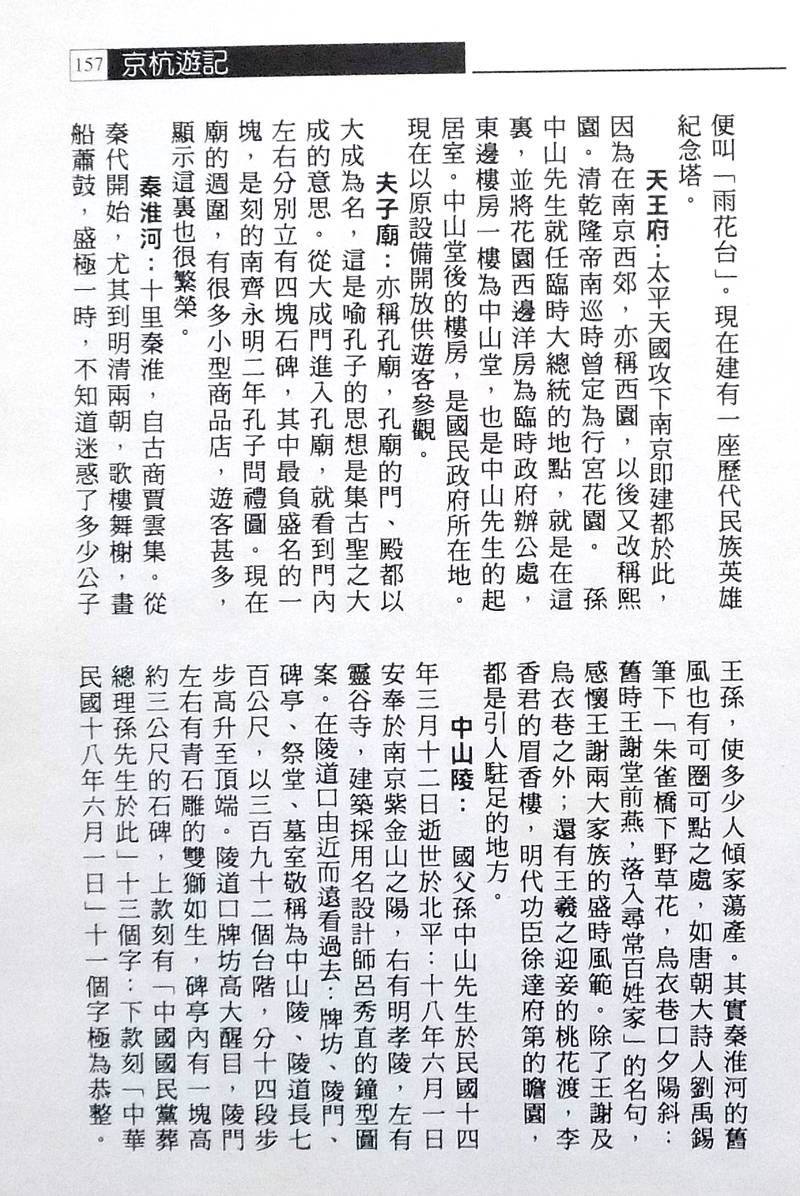 157 京杭遊記
便叫「雨花台」。現在建有一座歷代民族英雄
紀念塔。
天王府：太平天國攻下南京即建都於此，
因為在南京西郊，亦稱西園，以後又改稱熙
園。清乾隆帝南巡時曾定為行宮花園。 孫
中山先生就任臨時大總統的地點，就是在這
裏，並將花園西邊洋房為臨時政府辦公處，
東邊樓房一樓為中山堂，也是中山先生的起
居室。中山堂後的樓房，是國民政府所在地。
現在以原設備開放供遊客參觀。
夫子廟：亦稱孔廟，孔廟的門、殿都以
大成為名，這是喻孔子的思想是集古聖之大
成的意思。從大成門進入孔廟，就看到門內
左右分別立有四塊石碑，其中最負盛名的一
塊，是刻的南齊永明二年孔子問禮圖。現在
廟的週圍，有很多小型商品店，遊客甚多，
顯示這裏也很繁榮。
秦淮河：十里秦淮，自古商賈雲集。從
秦代開始，尤其到明清兩朝，歌樓舞榭，畫
船蕭鼓，盛極一時，不知道迷惑了多少公子
王孫，使多少人傾家蕩產。其實秦淮河的舊
風也有可圈可點之處，如唐朝大詩人劉禹錫
筆下「朱雀橋下野草花，烏衣巷口夕陽斜：
舊時王謝堂前燕，落入尋常百姓家」的名句，
感懷王謝兩大家族的盛時風範。除了王謝及
烏衣巷之外；還有王羲之迎妾的桃花渡，李
香君的眉香樓，明代功臣徐達府第的瞻園，
都是引人駐足的地方。
中山陵： 國父孫中山先生於民國十四
年三月十二日逝世於北平：十八年六月一日
安奉於南京紫金山之陽，右有明孝陵，左有
靈谷寺，建築採用名設計師呂秀直的鐘型圖
案。在陵道口由近而遠看過去：牌坊、陵門、
碑亭、祭堂、墓室敬稱為中山陵、陵道長七
百公尺，以三百九十二個台階，分十四段步
步高升至頂端。陵道口牌坊高大醒目，陵門
左右有青石雕的雙獅如生，碑亭內有一塊高
約三公尺的石碑，上款刻有「中國國民黨葬
總理孫先生於此」十三個字：下款刻「中華
民國十八年六月一日」十一個字極為恭整。